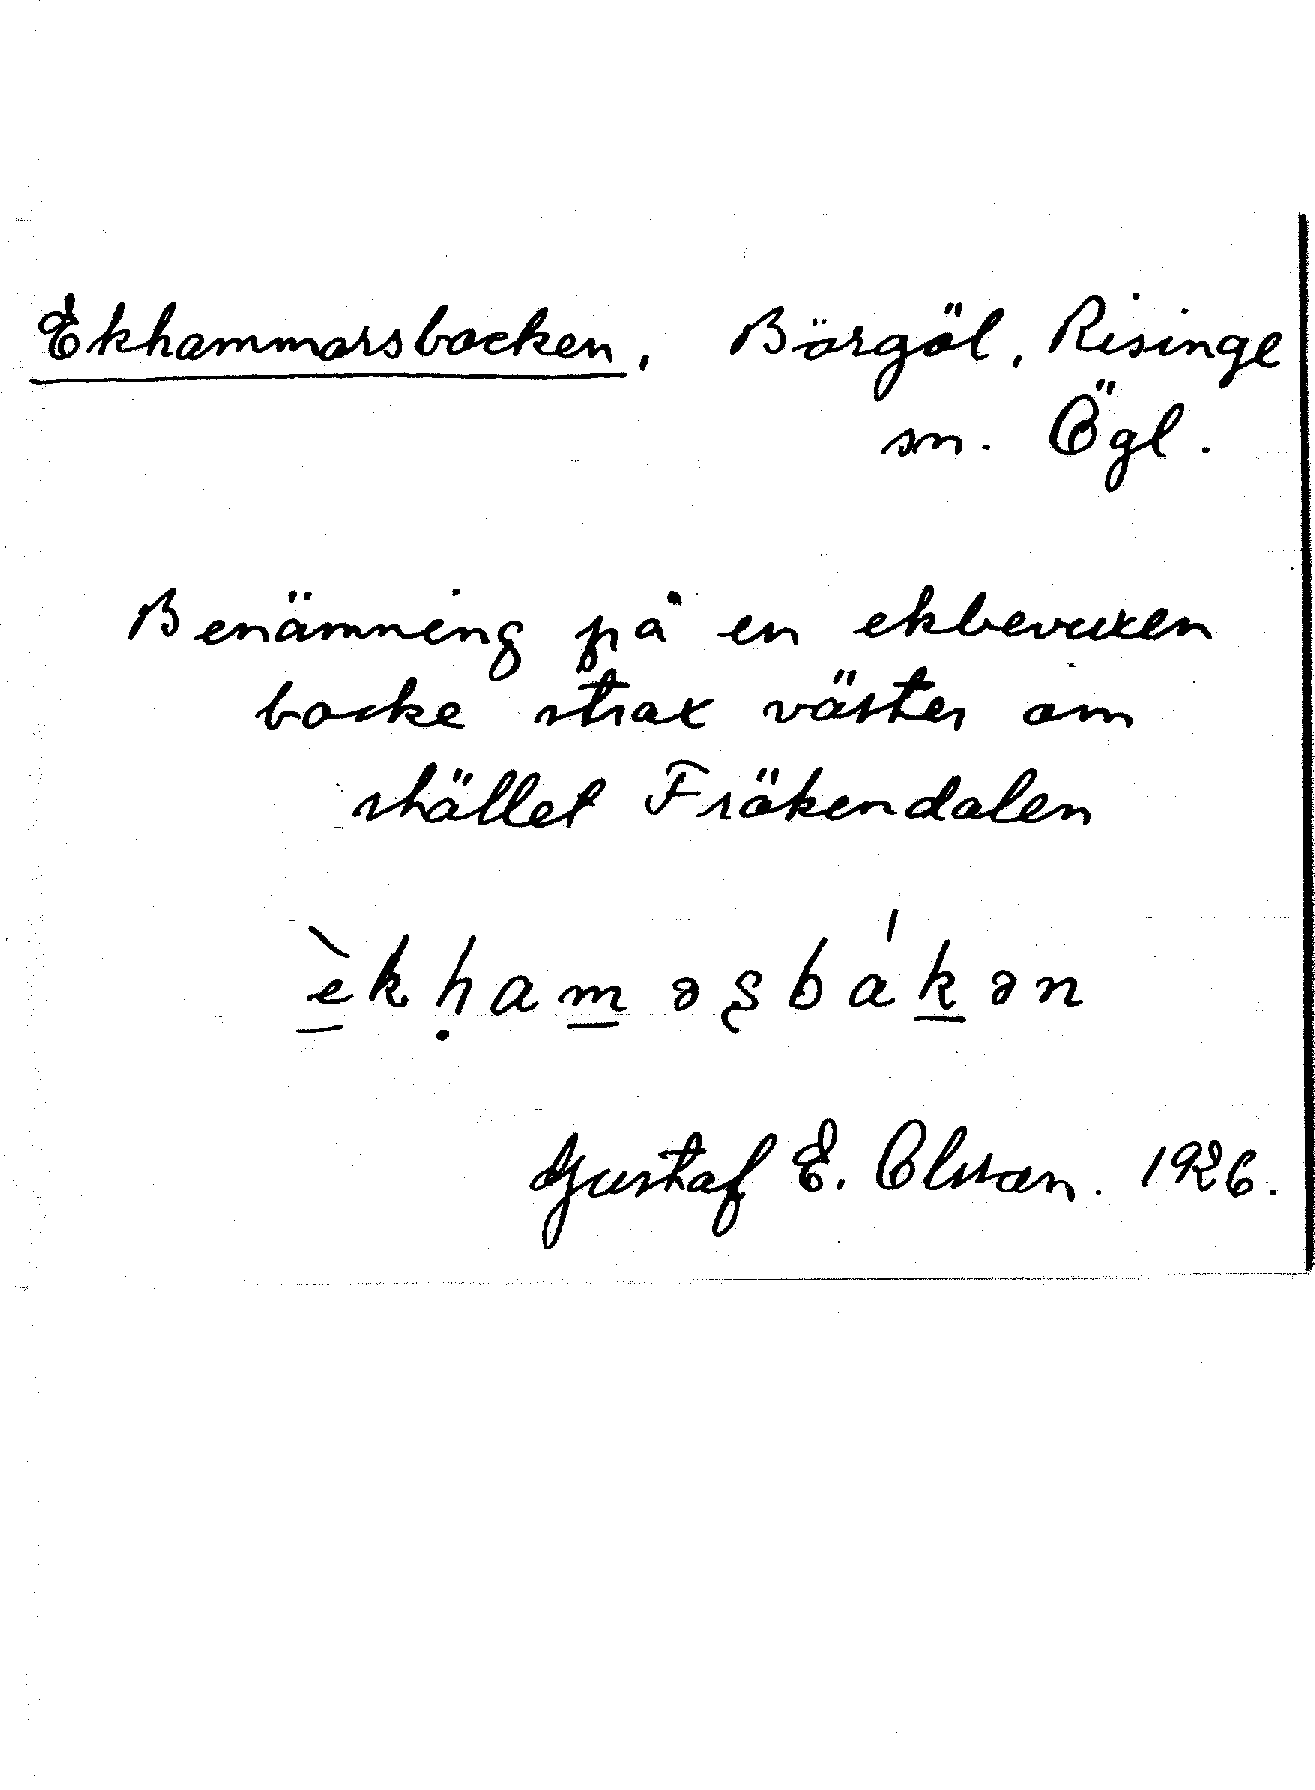 Ekhammarsbacken. Börgöl, Risinge
sn. Ögl.
Benämning på en ekbevuxen
backe strax väster om
stället Fräkendalen
è̲kḥam̲əʂbák̲ən
Gustaf E. Olsson. 1926.